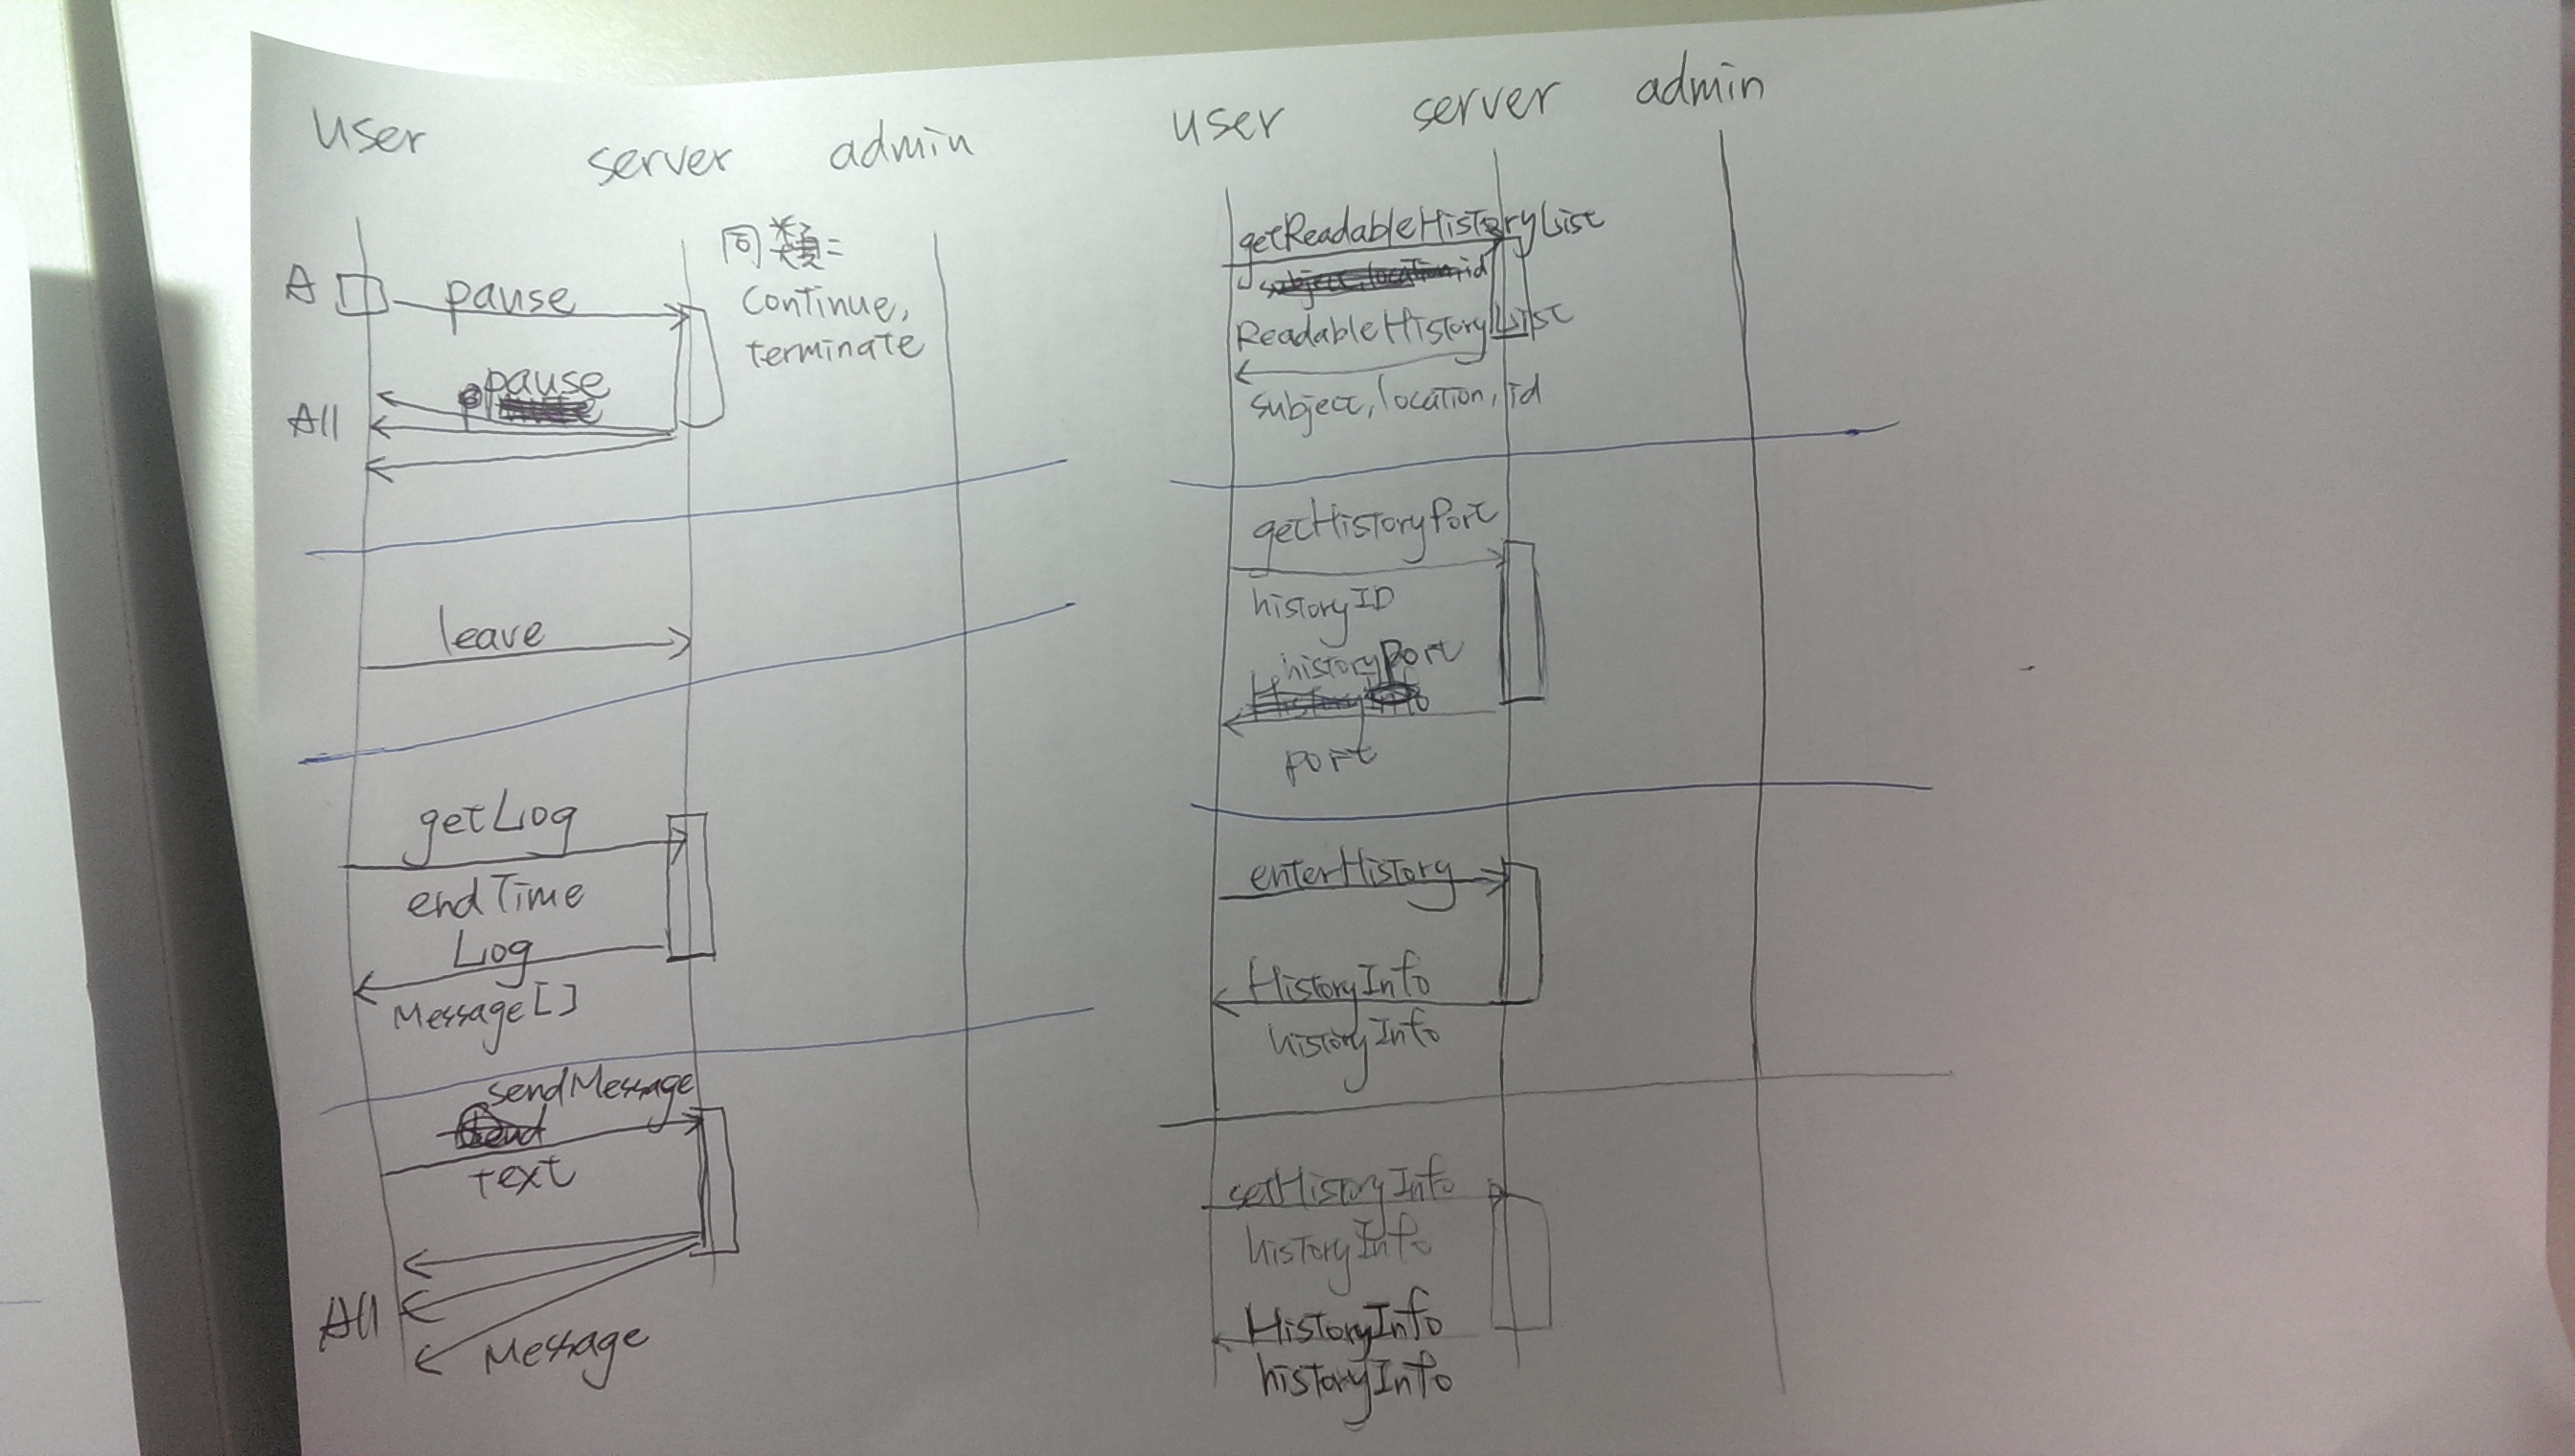 user server admin
同類=
continue,
terminate
A pause
pause
All
leave
getLog
endTime
Log
Message[]
sendMessage
text
All
Message
user server admin
getReadableHistoryList
subject, location, id
ReadableHistoryList
subject, location, id
getHistoryPort
historyID
historyPort
port
enterHistory
HistoryInfo
historyInfo
setHistoryInfo
historyInfo
HistoryInfo
historyInfo